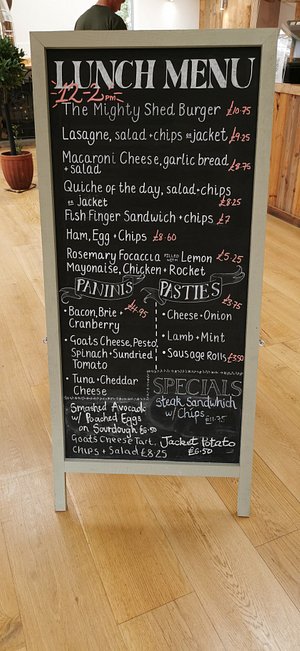 LUNCH MENU
12-2PM
The Mighty Shed Burger £10.75
Lasagne, salad + chips or jacket £9.25
Macaroni Cheese, garlic bread
+ salad £8.75
Quiche of the day, salad + chips
or jacket £8.25
Fish Finger Sandwich + chips £7
Ham, Egg + Chips £8.60
Rosemary Focaccia filled with Lemon £5.25
Mayonaise, Chicken + Rocket
PANINIS £4.95
• Bacon, Brie +
Cranberry
• Goats Cheese, Pesto,
Spinach + Sundried
Tomato
• Tuna + Cheddar
Cheese
PASTIES £3.75
• Cheese + Onion
• Lamb + Mint
• Sausage Rolls £3.50
SPECIALS
Steak Sandwhich
w/ Chips
Smashed Avocado
w/ Poached Eggs
on Sourdough £6.50
Goats Cheese Tart,
Chips + Salad £8.25
Jacket Potato
£6.50